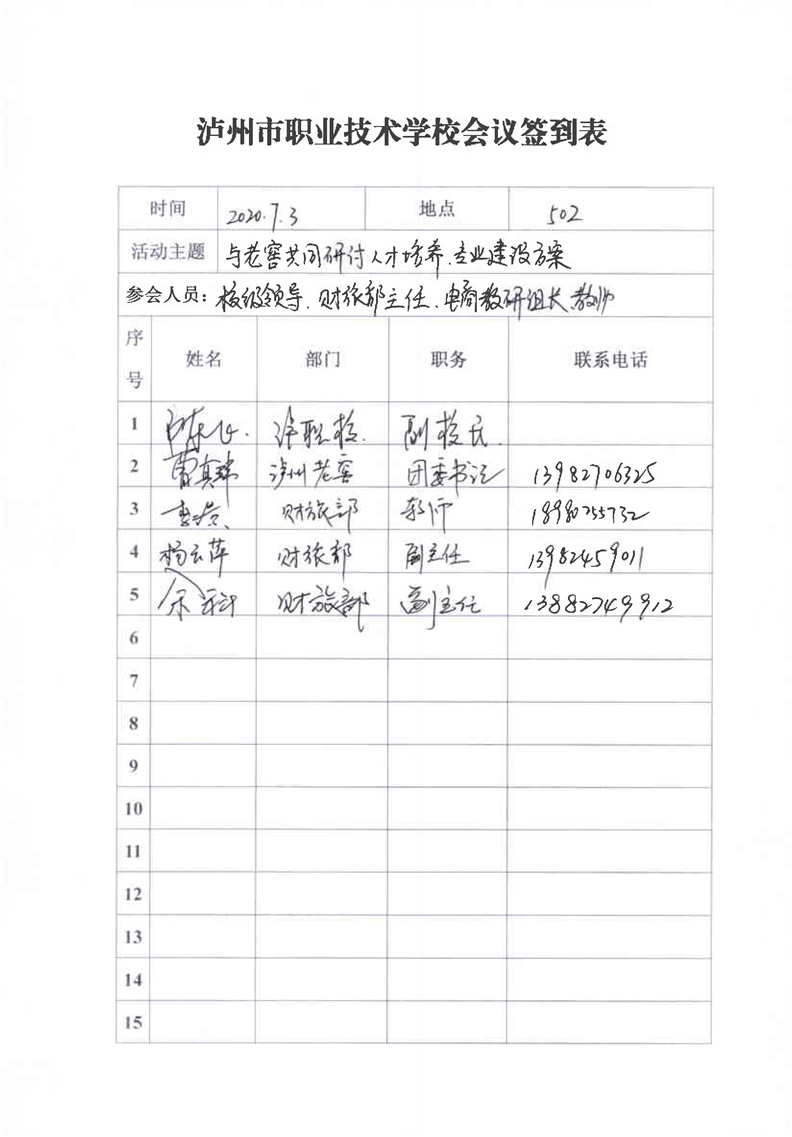 泸州市职业技术学校会议签到表
时间 2020.7.3 地点 502
活动主题 与老窖共同研讨人才培养、专业建设方案
参会人员：校级领导、财旅部主任、电商教研组长、教师
序号 姓名 部门 职务 联系电话
1 泸职校 副校长
2 泸州老窖 团委书记 13982706325
3 财旅部 教师 18980255732
4 杨云萍 财旅部 副主任 13982459011
5 财旅部 副主任 13882749912
6
7
8
9
10
11
12
13
14
15